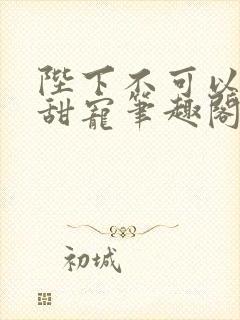 陛下不可以
甜寵筆趣閣
初城